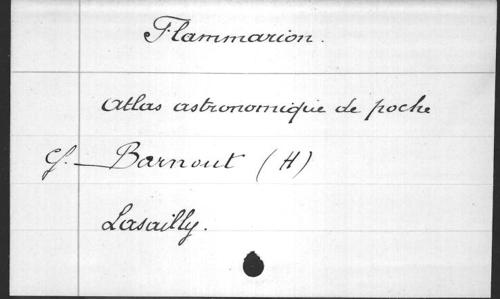 Flammarion.
Atlas astronomique de poche
Cf. — Barnout (H)
Lasailly.